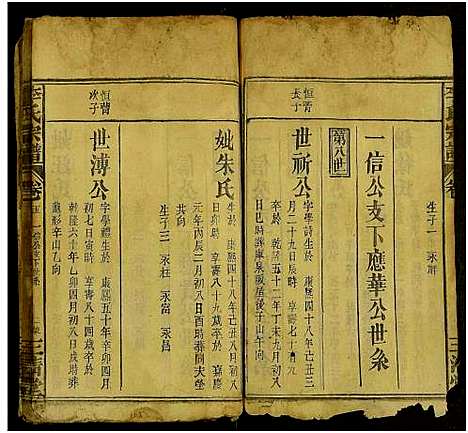 生子一 永祥
一信公支下應華公世系
第八世
恒菁長子
世祈公
字學詩生於 康熙四十八年己丑三
月二十九日辰時 享壽七十有九
卒於 乾隆五十二年丁未十月初八
日巳時葬
妣朱氏
康熙四十八年己丑八月
享壽八十九歲卒於
元年丙辰二月初八日酉時葬 同夫塋
共向
生子三 永柱 永富 永昌
恒菁次子
世溥公
字學禮生於 康熙五十年辛卯四月
初七日寅時 享壽八十四歲卒於
乾隆六十年乙卯四月初八日戌時葬
形辛山乙向
李氏宗譜
卷